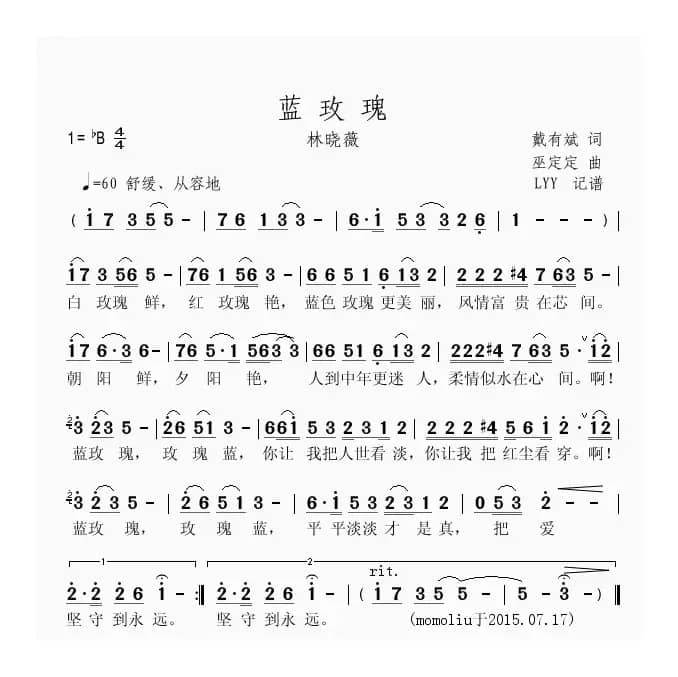 蓝玫瑰
1=♭B 4/4 林晓薇 戴有斌 词
巫定定 曲
♩=60 舒缓、从容地 LYY 记谱
( i 7 3 5 5 - | 7 6 1 3 3 - | 6·i 5 3 3 2 6 | 1 - - - ) |
i 7 3 5 6 5 - | 7 6 1 5 6 6 - | 6 6 5 1 6 1 3 2 | 2 2 2 #4 7 6 3 5 - |
白 玫瑰 鲜, 红 玫瑰 艳, 蓝色玫瑰更美 丽, 风情富 贵在芯 间。
i 7 6·3 6 - | 7 6 5·1 5 6 3 3 | 6 6 5 1 6 1 3 2 | 2 2 2 #4 7 6 3 5· i 2 |
朝 阳 鲜, 夕 阳 艳, 人到中年更迷 人, 柔情似水在心 间。啊!
3 2 3 5 - | 2 6 5 1 5 - | 6 6 i 5 3 2 3 1 2 | 2 2 2 #4 5 6 1 2· i 2 |
蓝玫 瑰, 玫 瑰 蓝, 你让 我把人世看 淡, 你让我 把 红尘看 穿。啊!
3 2 3 5 - | 2 6 5 1 5 - | 6·i 5 3 2 3 1 2 | 0 5 3 2 - - |
蓝玫 瑰, 玫 瑰 蓝, 平 平淡淡才 是真, 把 爱
1 2
rit.
2·2 2 6 i - :| 2·2 2 6 i - | ( i 7 3 5 5 - | 5 - 3 - ) |
坚 守到永 远。 坚 守到永 远。 (momoliu于2015.07.17)